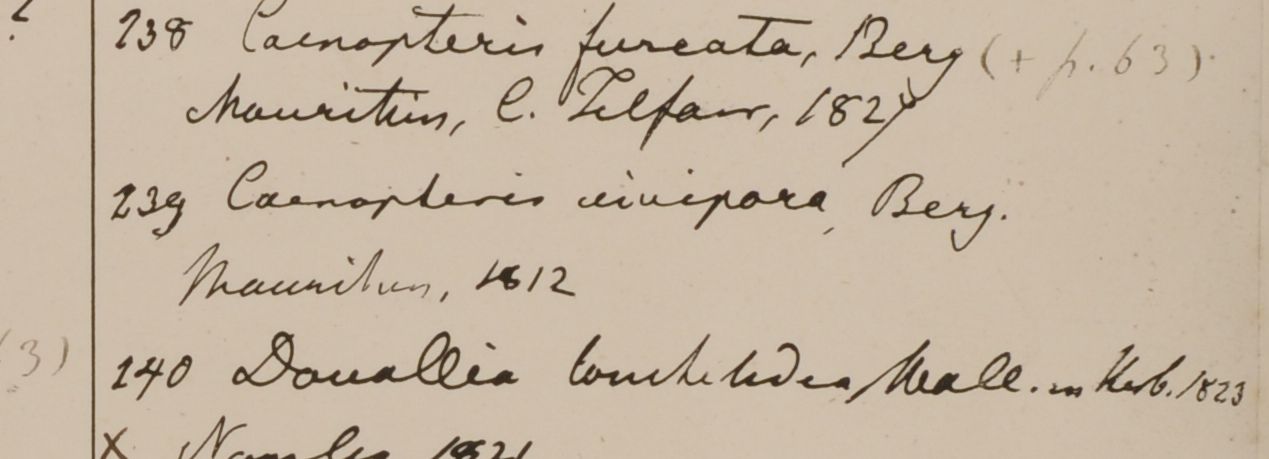 238 Caenopteris furcata, Berg (+ p. 63).
Mauritius, C. Telfair, 1827
239 Caenopteris vivipara, Berg.
Mauritius, 1812
(3)
240 Davallia Wall. in Herb. 1823
x 1821